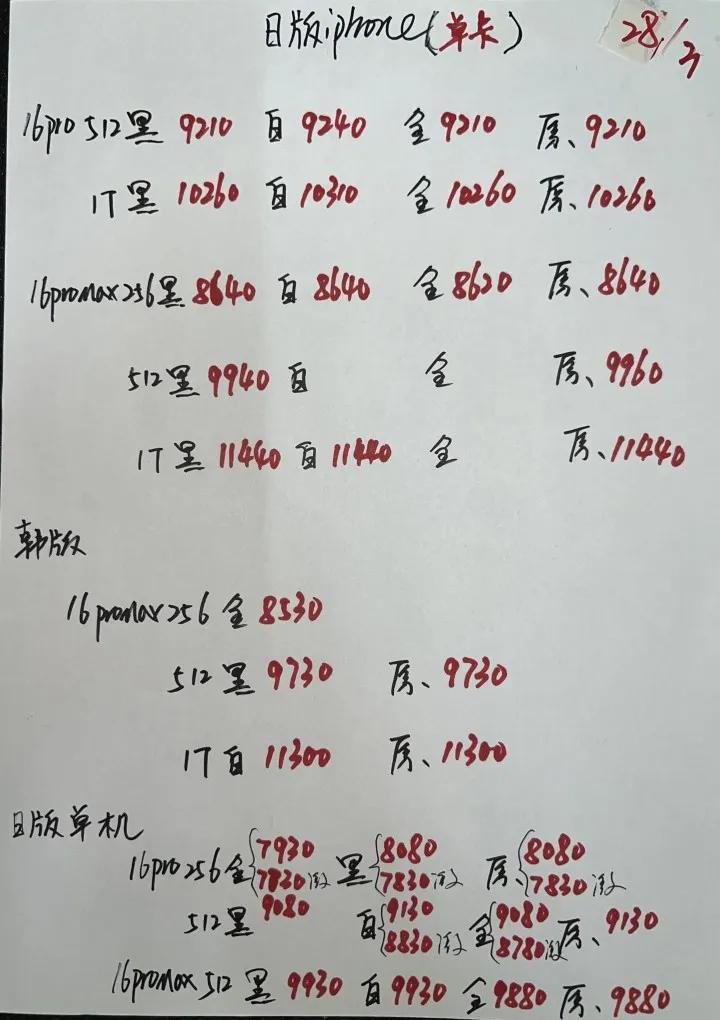 日版iphone(单卡) 28/3
16pro 512黑 9210 白 9240 全 9210 原、9210
1T黑 10260 白 10310 全 10260 原、10260
16promax256黑 8640 白 8640 全 8620 原、8640
512黑 9940 白 全 原、9960
1T黑 11440 白 11440 全 原、11440
韩版
16promax256 全 8530
512黑 9730 原、9730
1T白 11300 原、11300
日版单机
16pro256全 7930 黑 8080 原、8080
7830激 7830激 7830激
512黑 9080 白 9130 全 9080 原、9130
8830激 8780激
16promax 512 黑 9930 白 9930 全 9880 原、9880